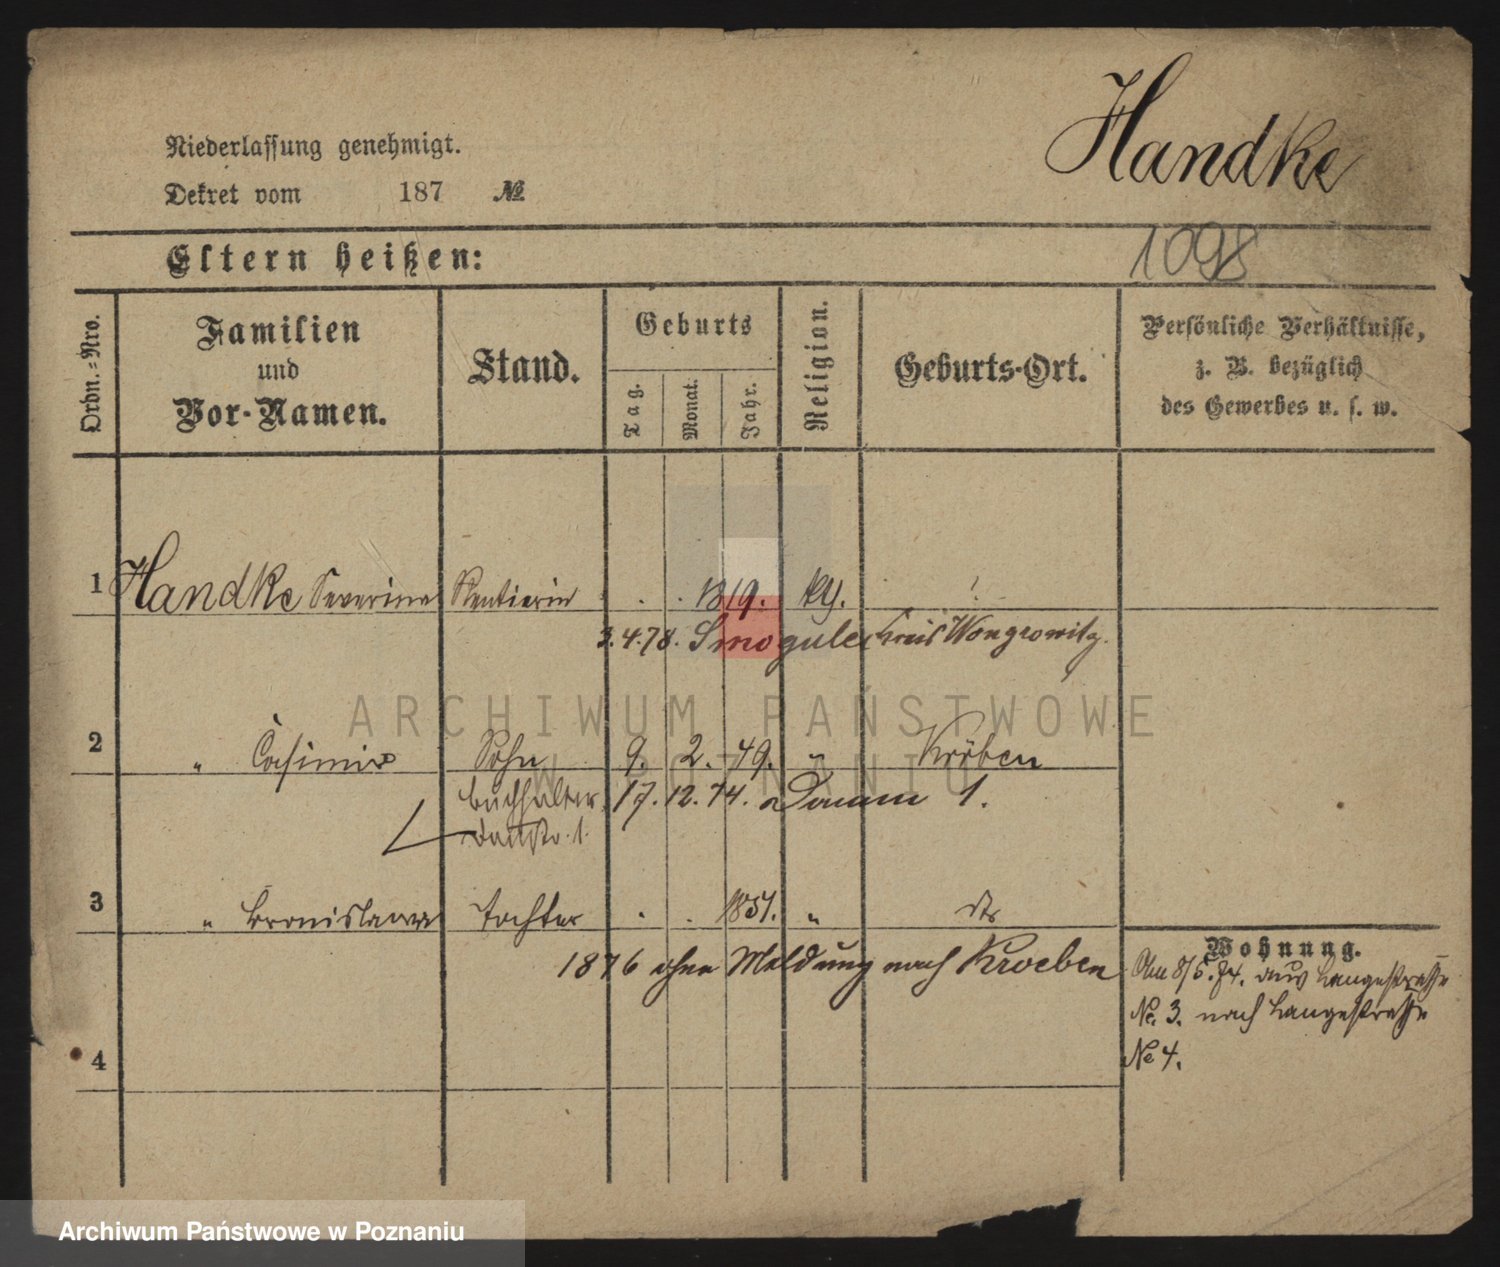 Handke
Niederlassung genehmigt.
Dekret vom 187 №
Eltern heißen:
1098
Ordn.=Nro.
Familien
und
Vor-Namen.
Stand.
Geburts
Tag. Monat. Jahr.
Religion.
Geburts-Ort.
Persönliche Verhältnisse,
z. B. bezüglich
des Gewerbes u. s. w.
1 Handke Severine Rentierin . . 1819. kth.
3.4.78. Smogulec Kreis Wongrowitz.
2 " Casimir Sohn 9. 2. 49. " Kröben
Buchhalter. 17. 12. 74. 1.
3 " Bronislawa Tochter . . 1851. " dto
1876 ohne Meldung nach Kroeben
Wohnung.
Am 8/5. 74. aus Langestraße
No. 3. nach Langestraße
No 4.
4
ARCHIWUM PAŃSTWOWE
W POZNANIU
Archiwum Państwowe w Poznaniu